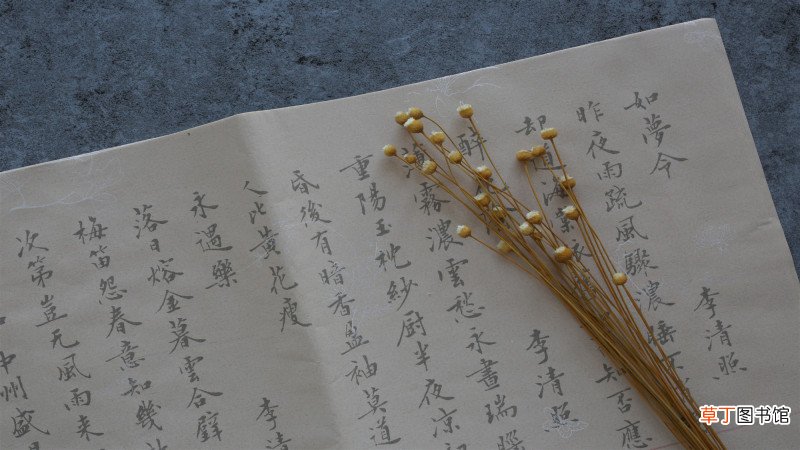 如夢令 李清照
昨夜雨疏風驟濃睡不
却道海棠依 知否應
醉 李清照
薄霧濃雲愁永晝瑞腦
重陽玉枕紗厨半夜凉初
昏後有暗香盈袖莫道
人比黃花瘦
永遇樂 李清
落日熔金暮雲合璧
梅笛怨春意知幾
次第豈无風雨来
中州盛
草丁图书馆